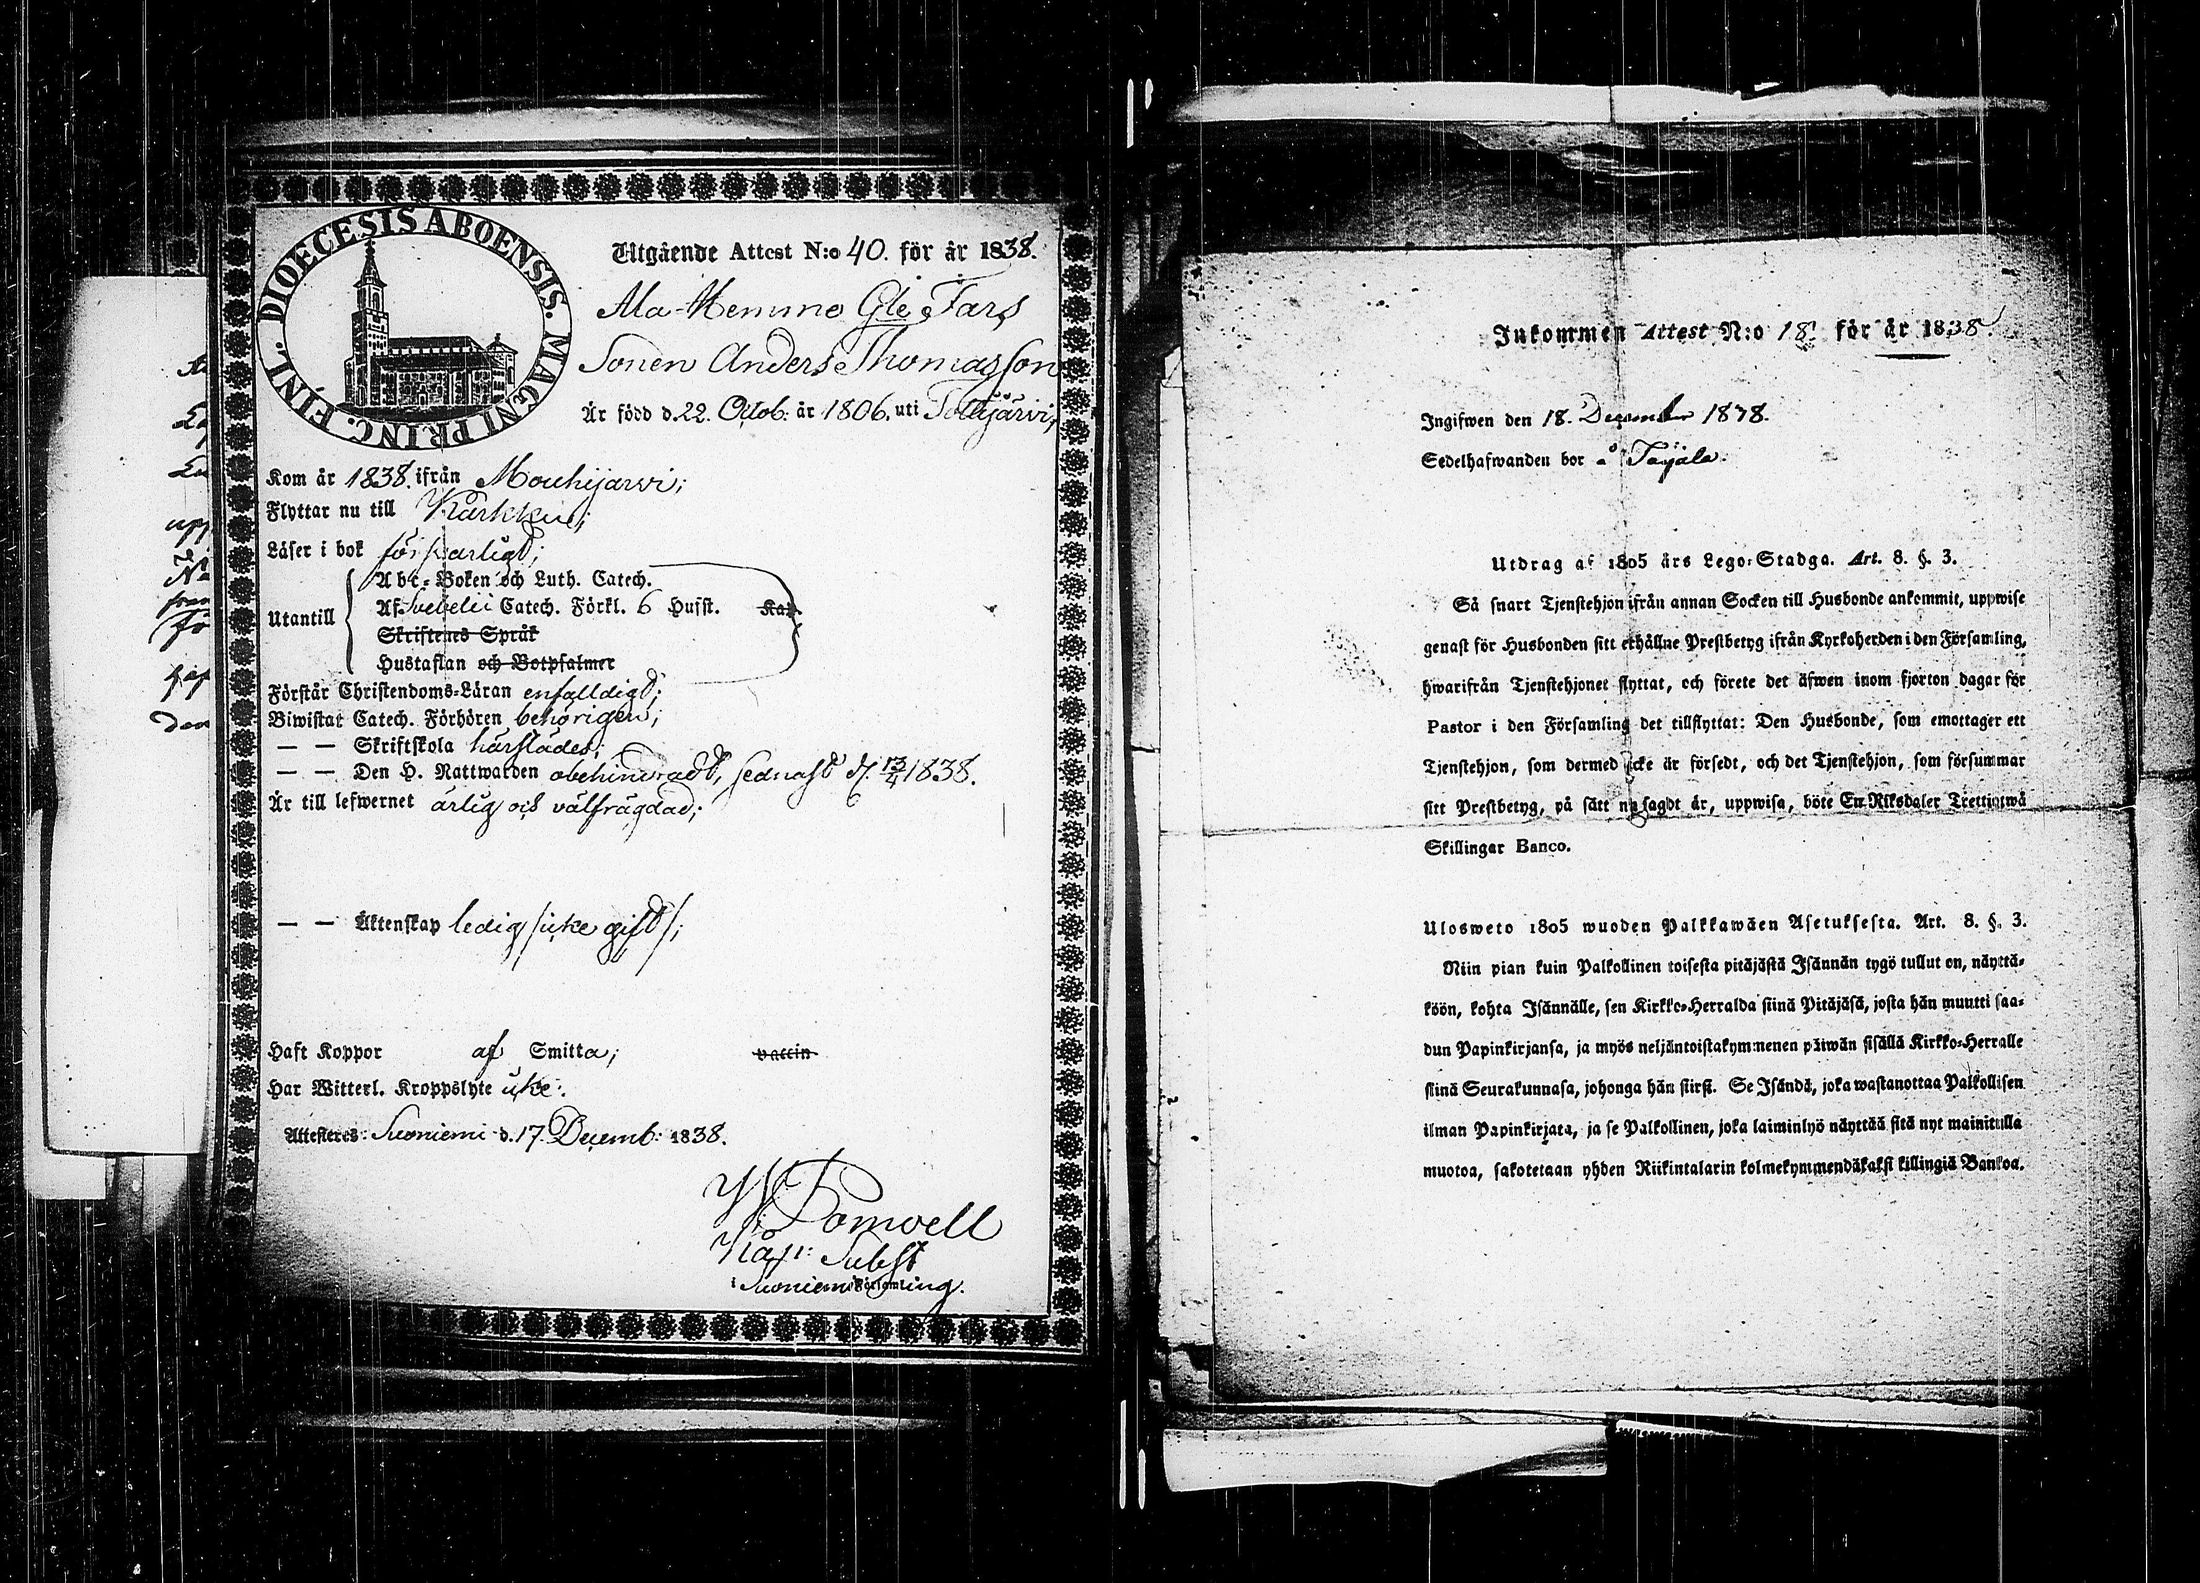 DIOECESIS ABOENSIS. MAGNI PRINC. FINL.
Utgående Attest N:o 40. för år 1838.
Ala-Hemmo Gle Fars
Sonen Anders Thomasson
Är född d. 22. Octob: år 1806. uti
Kom år 1838. ifrån Mouhijärvi;
Flyttar nu till Karkku;
Läser i bok försvarligt;
Utantill
Abc-Boken och Luth. Catech.
Af Svebelii Catech. Förkl. 6 Hufst. Kap.
Skriftenes Språk
Hustaflan och Botpsalmer
Förstår Christendoms-Läran enfalldigt;
Biwistat Catech. Förhören behörigen;
— — Skriftskola härstädes;
— — Den H. Nattwarden obehindradt, sednast d. 13/4 1838.
Är till lefwernet ärlig och välfrägdad;
— — Äktenskap ledig /icke gift/;
Haft Koppor af Smitta; vaccin
Har Witterl. Kroppslyte icke.
Attesteres: Suoniemi d. 17. Decemb: 1838.
Kap: Subst
i Suoniemi Församling.
Inkommen Attest N:o 18. för år 1838
Ingifwen den 18. December 1838.
Sedelhafwanden bor å
Utdrag af 1805 års Lego-Stadga. Art. 8. §. 3.
Så snart Tjenstehjon ifrån annan Socken till Husbonde ankommit, uppwise
genast för Husbonden sitt erhållne Prestbetyg ifrån Kyrkoherden i den Församling,
hwarifrån Tjenstehjonet flyttat, och förete det äfwen inom fjorton dagar för
Pastor i den Församling det tillflyttat: Den Husbonde, som emottager ett
Tjenstehjon, som dermed icke är försedt, och det Tjenstehjon, som försummar
sitt Prestbetyg, på sätt nu sagdt är, uppwisa, böte En Riksdaler Trettiotwå
Skillingar Banco.
Ulosweto 1805 wuoden Palkkawäen Asetuksesta. Art. 8. §. 3.
Niin pian kuin Palkollinen toisesta pitäjästä Isännän tygö tullut on, näyttä-
köön, kohta Isännälle, sen Kirkko-Herralda siinä Pitäjäsä, josta hän muutti saa-
dun Papinkirjansa, ja myös neljäntoistakymmenen päiwän sisällä Kirkko-Herralle
siinä Seurakunnasa, johonga hän siirsi. Se Isändä, joka wastanottaa Palkollisen
ilman Papinkirjata, ja se Palkollinen, joka laiminlyö näyttää sitä nyt mainitulla
muotoa, sakotetaan yhden Riikintalarin kolmekymmendäkaksi killingiä Bankoa.